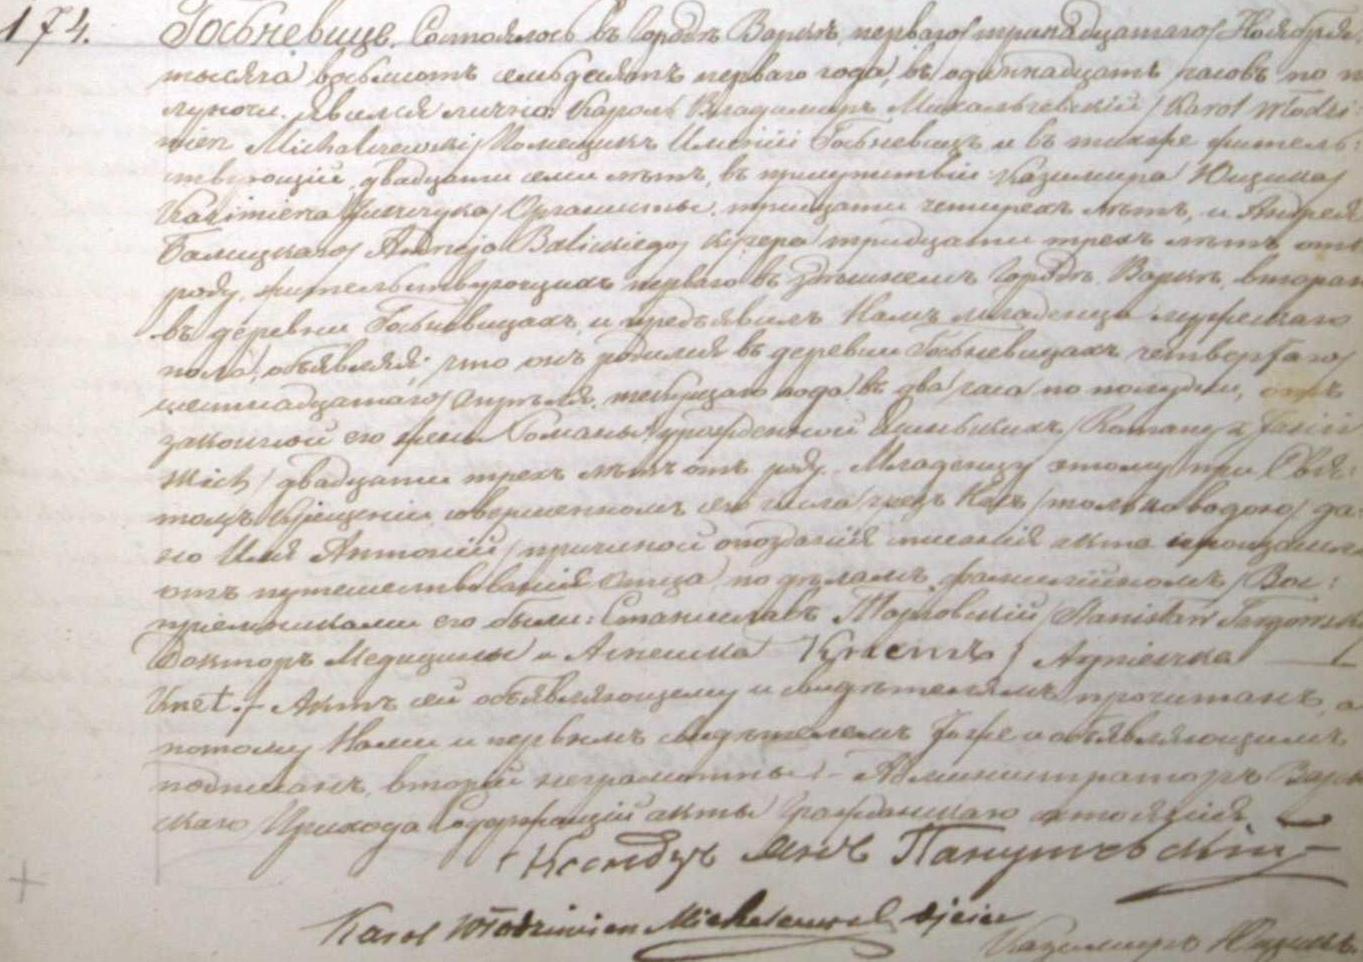 174. Госьневице. Состоялось въ Городѣ Варкѣ, перваго /тринадцатаго/ Ноября,
тысяча восьмсотъ семьдесятъ перваго года, въ одиннадцать часовъ по п
луночи. Явился лично: Кароль Владимиръ Михальчевскій /Karol Włodzi:
mierz Michalczewski/ Помещикъ Имѣній Госьневицъ и въ тихже житель:
ствующій, двадцати семи лѣтъ, въ присутствіи Казимира
Kazimierza Органисты, тридцати четырехъ лѣтъ, и Андрея
Балицкаго /Andreja Balickiego/ кучера тридцати трехъ лѣтъ отъ
роду, жительствующихъ перваго въ здѣшнемъ Городѣ Варкѣ, втораго
въ деревни Госьневицахъ, и предъявилъ Намъ младенца мужескаго
пола, объявляя; что онъ родился въ деревни Госьневицахъ четвертаго
шестнадцатаго/ Апрѣля, текущаго года, въ два часа по полудни, отъ
законной его жены Романы урожденной /Romany z
двадцати трехъ лѣтъ отъ роду. Младенцу этому при Свя:
томъ Крещеніи совершенномъ сего числа /только водою/ да
но Имя Антоній, /причиной опозданія писанія акта
отъ путешествованія Отца по дѣламъ фамилійномъ/ Вос:
пріемниками его были: Станиславъ Тарговскій /Stanisław Targowski
Докторъ Медицины и Агнешка Кнетъ / Agnieszka
Knet./ Актъ сей объявляющему и свидѣтелямъ прочитанъ, а
потому Нами и первымъ свидѣтелемъ тоже и объявляющимъ
подписанъ, вторый неграмотны. - Администраторъ Варец
скаго Прихода Содержащій акты Гражданскаго состоянія
Ксендзъ Янъ
Karol Włodzimierz Michalczewski ojciec
Казимиръ